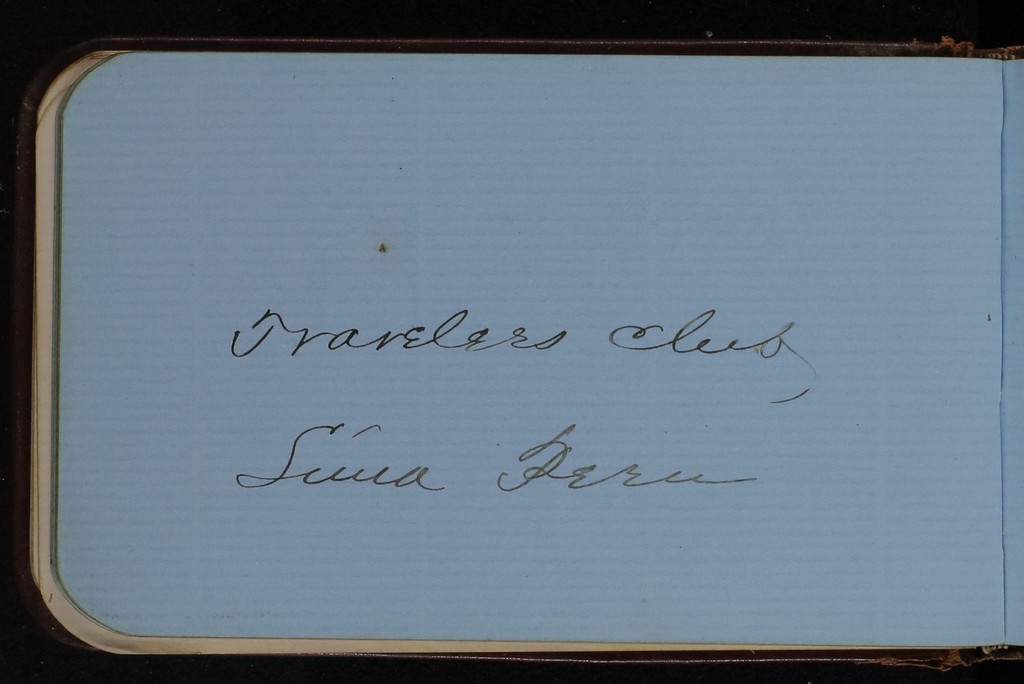 Travelers Club,
Lima Peru